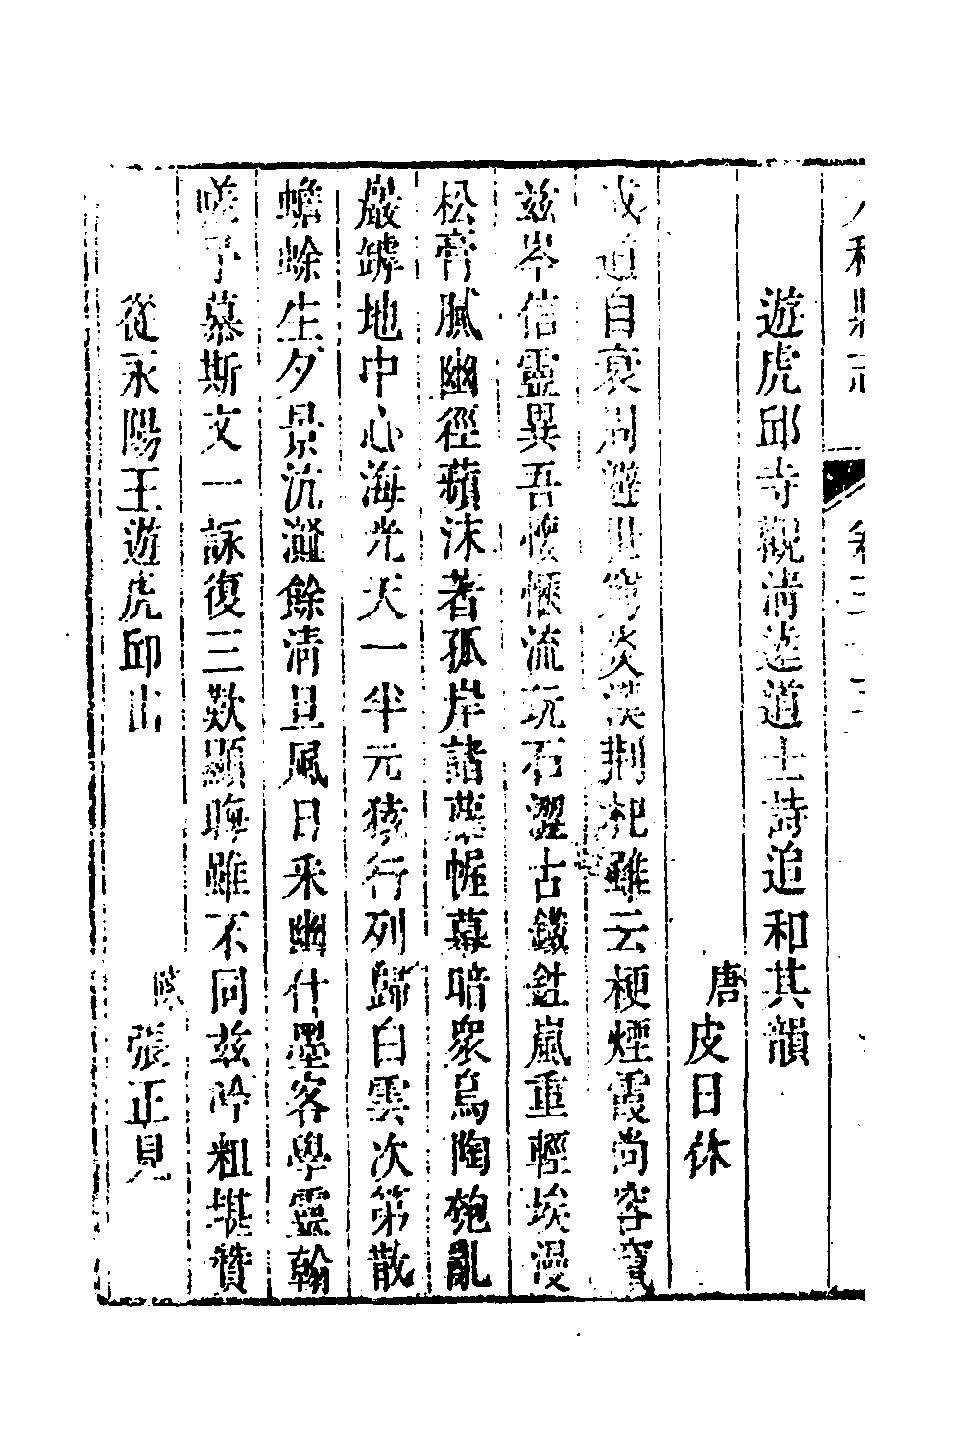 和縣志
遊虎邱寺觀清遠道士詩追和其韻
唐皮日休
成道自衰周避世窮炎漢荆杞雖云梗煙霞尚容竄
茲岑信靈異吾懷愜流玩石澀古鐵鉎嵐重輕埃漫
松膏膩幽徑蘋沫著孤岸諸蘿幄幕暗衆鳥陶匏亂
巖罅地中心海光天一半元猿行列歸白雲次第散
蟾蜍生夕景沆瀣餘清旦風日采幽什墨客學靈翰
嗟予慕斯文一詠復三歎顯晦雖不同茲吟粗堪贊
從永陽王遊虎邱山
陳張正見